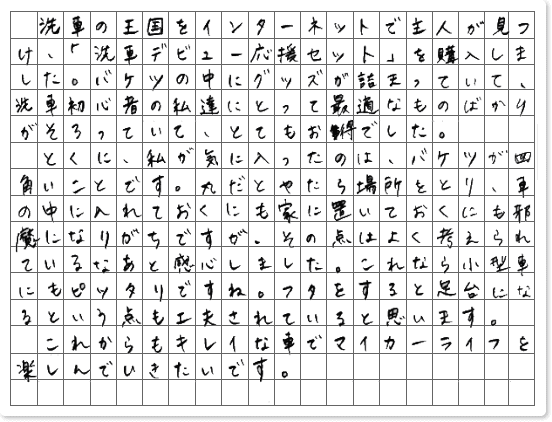 洗車の王国をインターネットで主人が見つ
け、「洗車デビュー応援セット」を購入しま
した。バケツの中にグッズが詰まっていて、
洗車初心者の私達にとって最適なものばかり
がそろっていて、とてもお得でした。
とくに、私が気に入ったのは、バケツが四
角いことです。丸だとやたら場所をとり、車
の中に入れておくにも家に置いておくにも邪
魔になりがちですが、その点はよく考えられ
ているなあと感心しました。これなら小型車
にもピッタリですね。フタをすると足台にな
るという点も工夫されていると思います。
これからもキレイな車でマイカーライフを
楽しんでいきたいです。